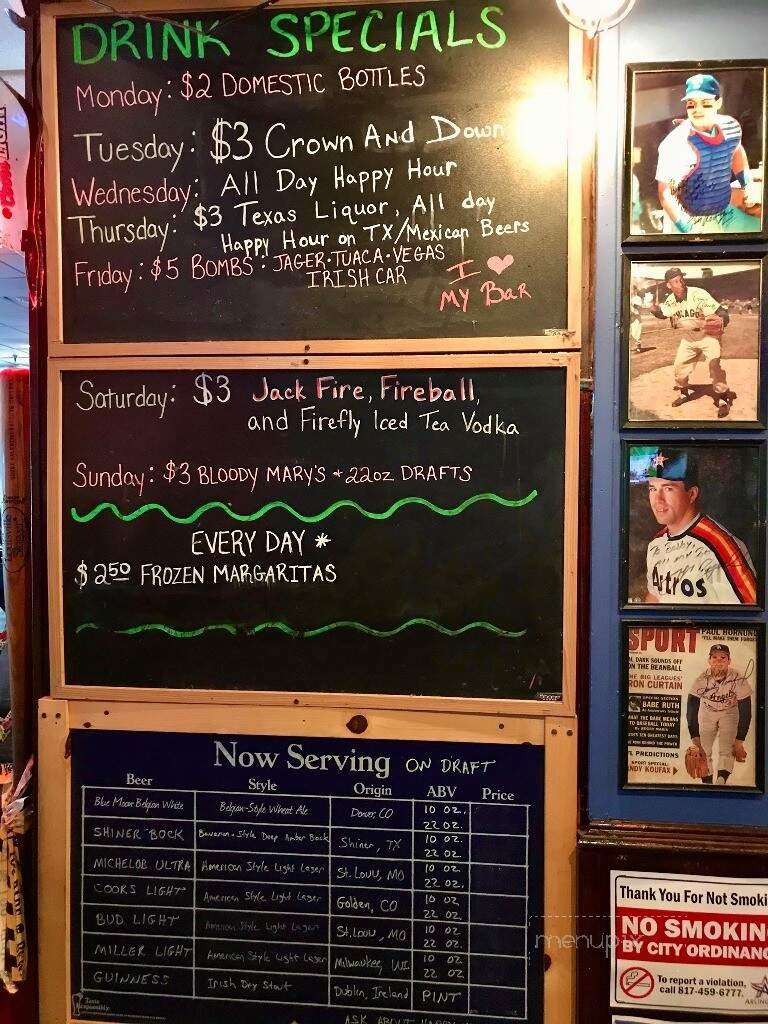 DRINK SPECIALS
Monday: $2 DOMESTIC BOTTLES
Tuesday: $3 Crown And Down
Wednesday: All Day Happy Hour
Thursday: $3 Texas Liquor, All day
Happy Hour on TX/Mexican Beers
Friday: $5 BOMBS: JAGER·TUACA·VEGAS
IRISH CAR
I ♥
MY BAR
Saturday: $3 Jack Fire, Fireball,
and Firefly Iced Tea Vodka
Sunday: $3 BLOODY MARY'S + 22oz DRAFTS
EVERY DAY *
$2.50 FROZEN MARGARITAS
Now Serving ON DRAFT
Beer Style Origin ABV Price
Blue Moon Belgian White Belgian-Style Wheat Ale Denver, CO 10 OZ.
22 OZ.
SHINER BOCK Bavarian-Style Deep Amber Bock Shiner, TX 10 OZ.
22 OZ.
MICHELOB ULTRA American Style Light Lager St. Louis, MO 10 OZ.
22 OZ.
COORS LIGHT American Style Light Lager Golden, CO 10 OZ
22 OZ
BUD LIGHT American Style Light Lager St. Louis, MO 10 OZ
22 OZ
MILLER LIGHT American Style Light Lager Milwaukee, WI 10 OZ
22 OZ
GUINNESS Irish Dry Stout Dublin, Ireland PINT
Taste
Responsibly
ASK ABOUT
Astros
SPORT
PAUL HORNUNG
"I'LL MAKE THEM FORGET
AL DARK SOUNDS OFF
ON THE BEANBALL
THE BIG LEAGUES'
IRON CURTAIN
SPECIAL SECTION
BABE RUTH
WHAT THE BABE MEANS
TO BASEBALL TODAY
BY ROGER MARIS
PREDICTIONS
SPORT SPECIAL:
SANDY KOUFAX
Los Angeles
Thank You For Not Smoki
NO SMOKIN
BY CITY ORDINANC
To report a violation,
call 817-459-6777.
ARLING
menupix